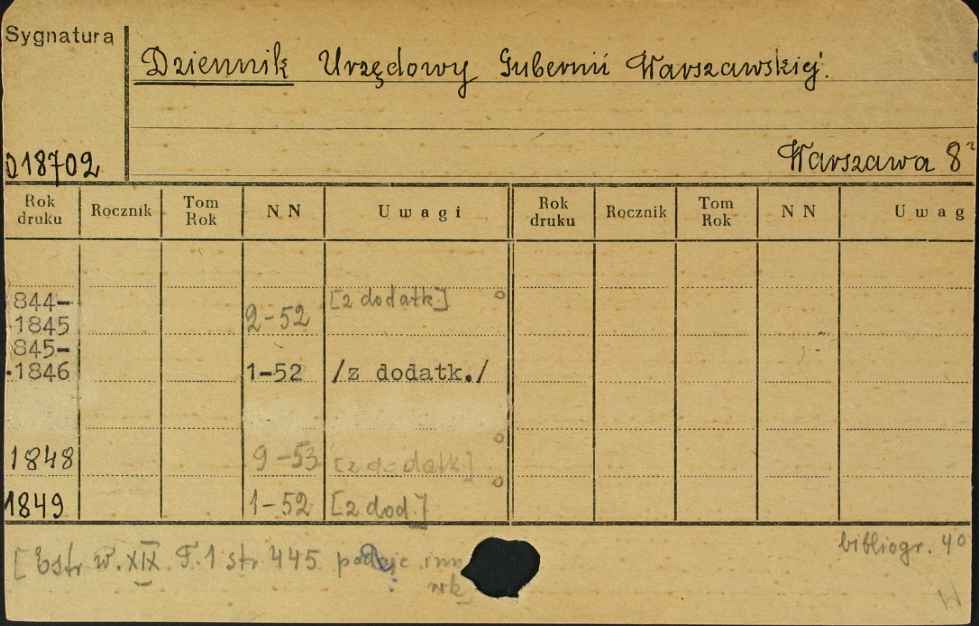 Sygnatura
Dziennik Urzędowy Gubernii Warszawskiej.
018702
Warszawa 8°
Rok druku Rocznik Tom Rok N N U w a g i Rok druku Rocznik Tom Rok N N U w a g
844-
1845 2-52 [z dodatk]
845-
1846 1-52 /z dodatk./
1848 9-53 [z dodatk]
1849 1-52 [z dod]
bibliogr. 4°
[Estr. w. XIX. T.1 str 445 podaje